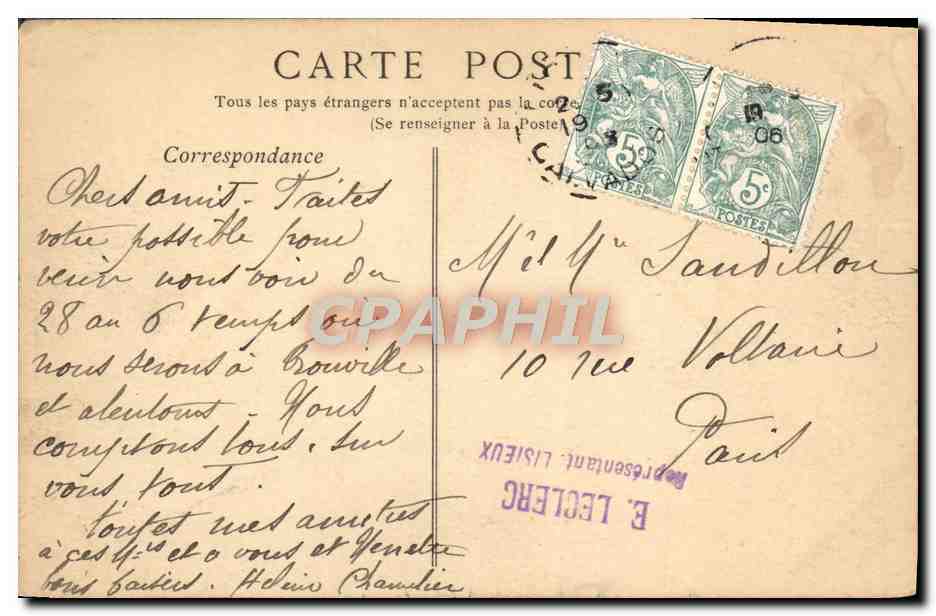 CARTE POST
Tous les pays étrangers n'acceptent pas la co
(Se renseigner à la Poste)
Correspondance
Chers amis. Faites
votre possible pour
venir nous voir du
28 au 6 temps ou
nous serons à Trouville
et alentours. Nous
comptons tous sur
vous tous.
toutes mes amitiés
à ces Mrs et a vous et
bons baisers.
2 5
19
CALVADOS
5c
POSTES
06
5c
POSTES
Mr et Mme Sandillon
10 rue Voltaire
Paris
E. LECLERC
Représentant. LISIEUX
CPAPHIL